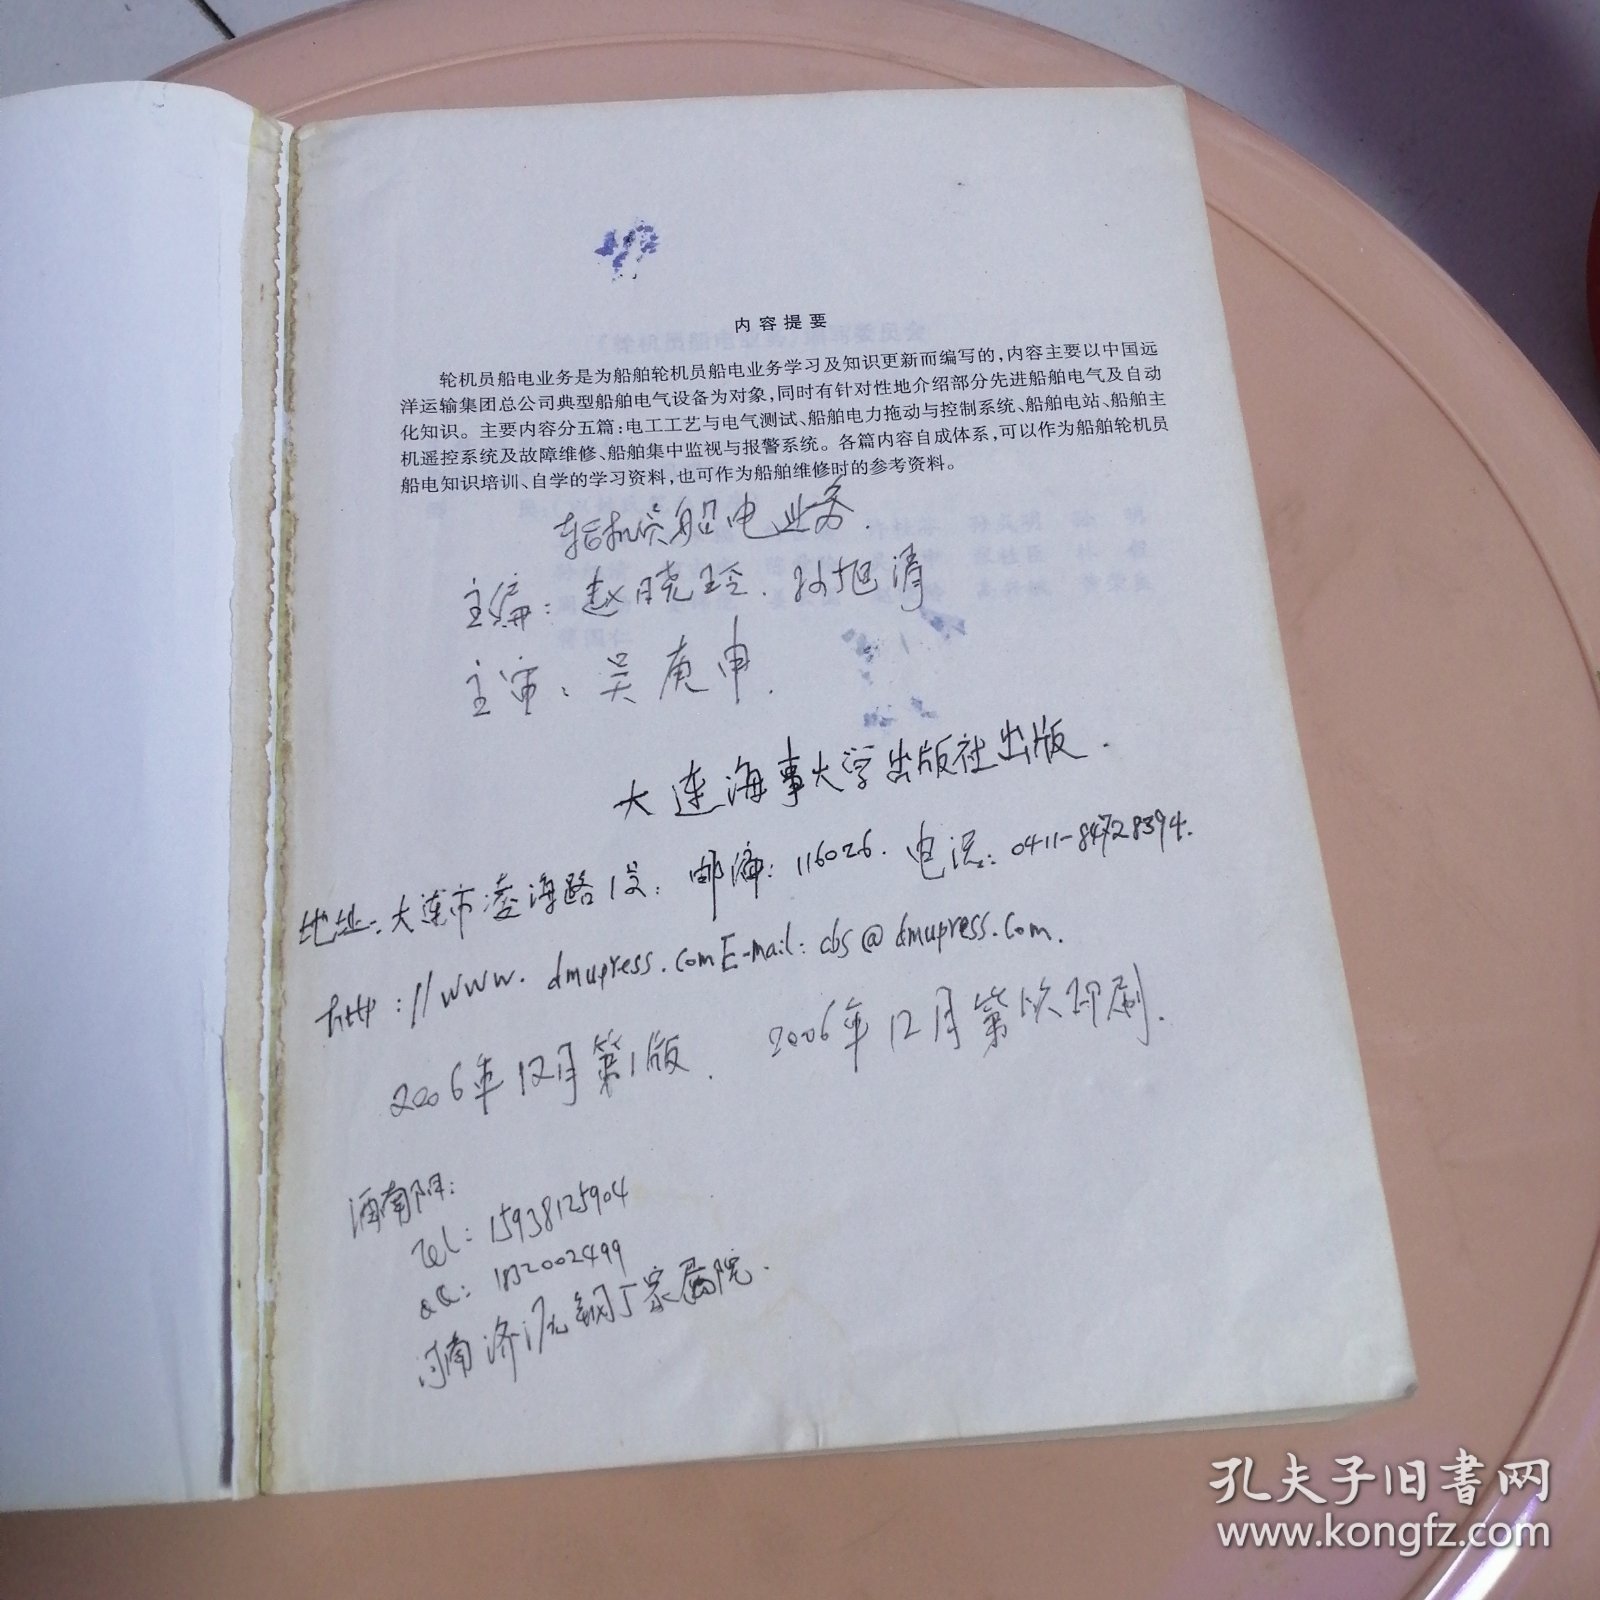 内容提要
轮机员船电业务是为船舶轮机员船电业务学习及知识更新而编写的，内容主要以中国远
洋运输集团总公司典型船舶电气设备为对象，同时有针对性地介绍部分先进船舶电气及自动
化知识。主要内容分五篇：电工工艺与电气测试、船舶电力拖动与控制系统、船舶电站、船舶主
机遥控系统及故障维修、船舶集中监视与报警系统。各篇内容自成体系，可以作为船舶轮机员
船电知识培训、自学的学习资料，也可作为船舶维修时的参考资料。
轮机员船电业务.
主编：赵晓玲.孙旭清
主审：吴庚申.
大连海事大学出版社出版.
地址：大连市凌海路1号：邮编：116026.电话：0411-84728394.
http://www.dmupress.com E-mail:cbs@dmupress.com.
2006年12月第1版. 2006年12月第1次印刷.
Tel：15938125904
河南济源钢厂家属院.
孔夫子旧书网
www.kongfz.com